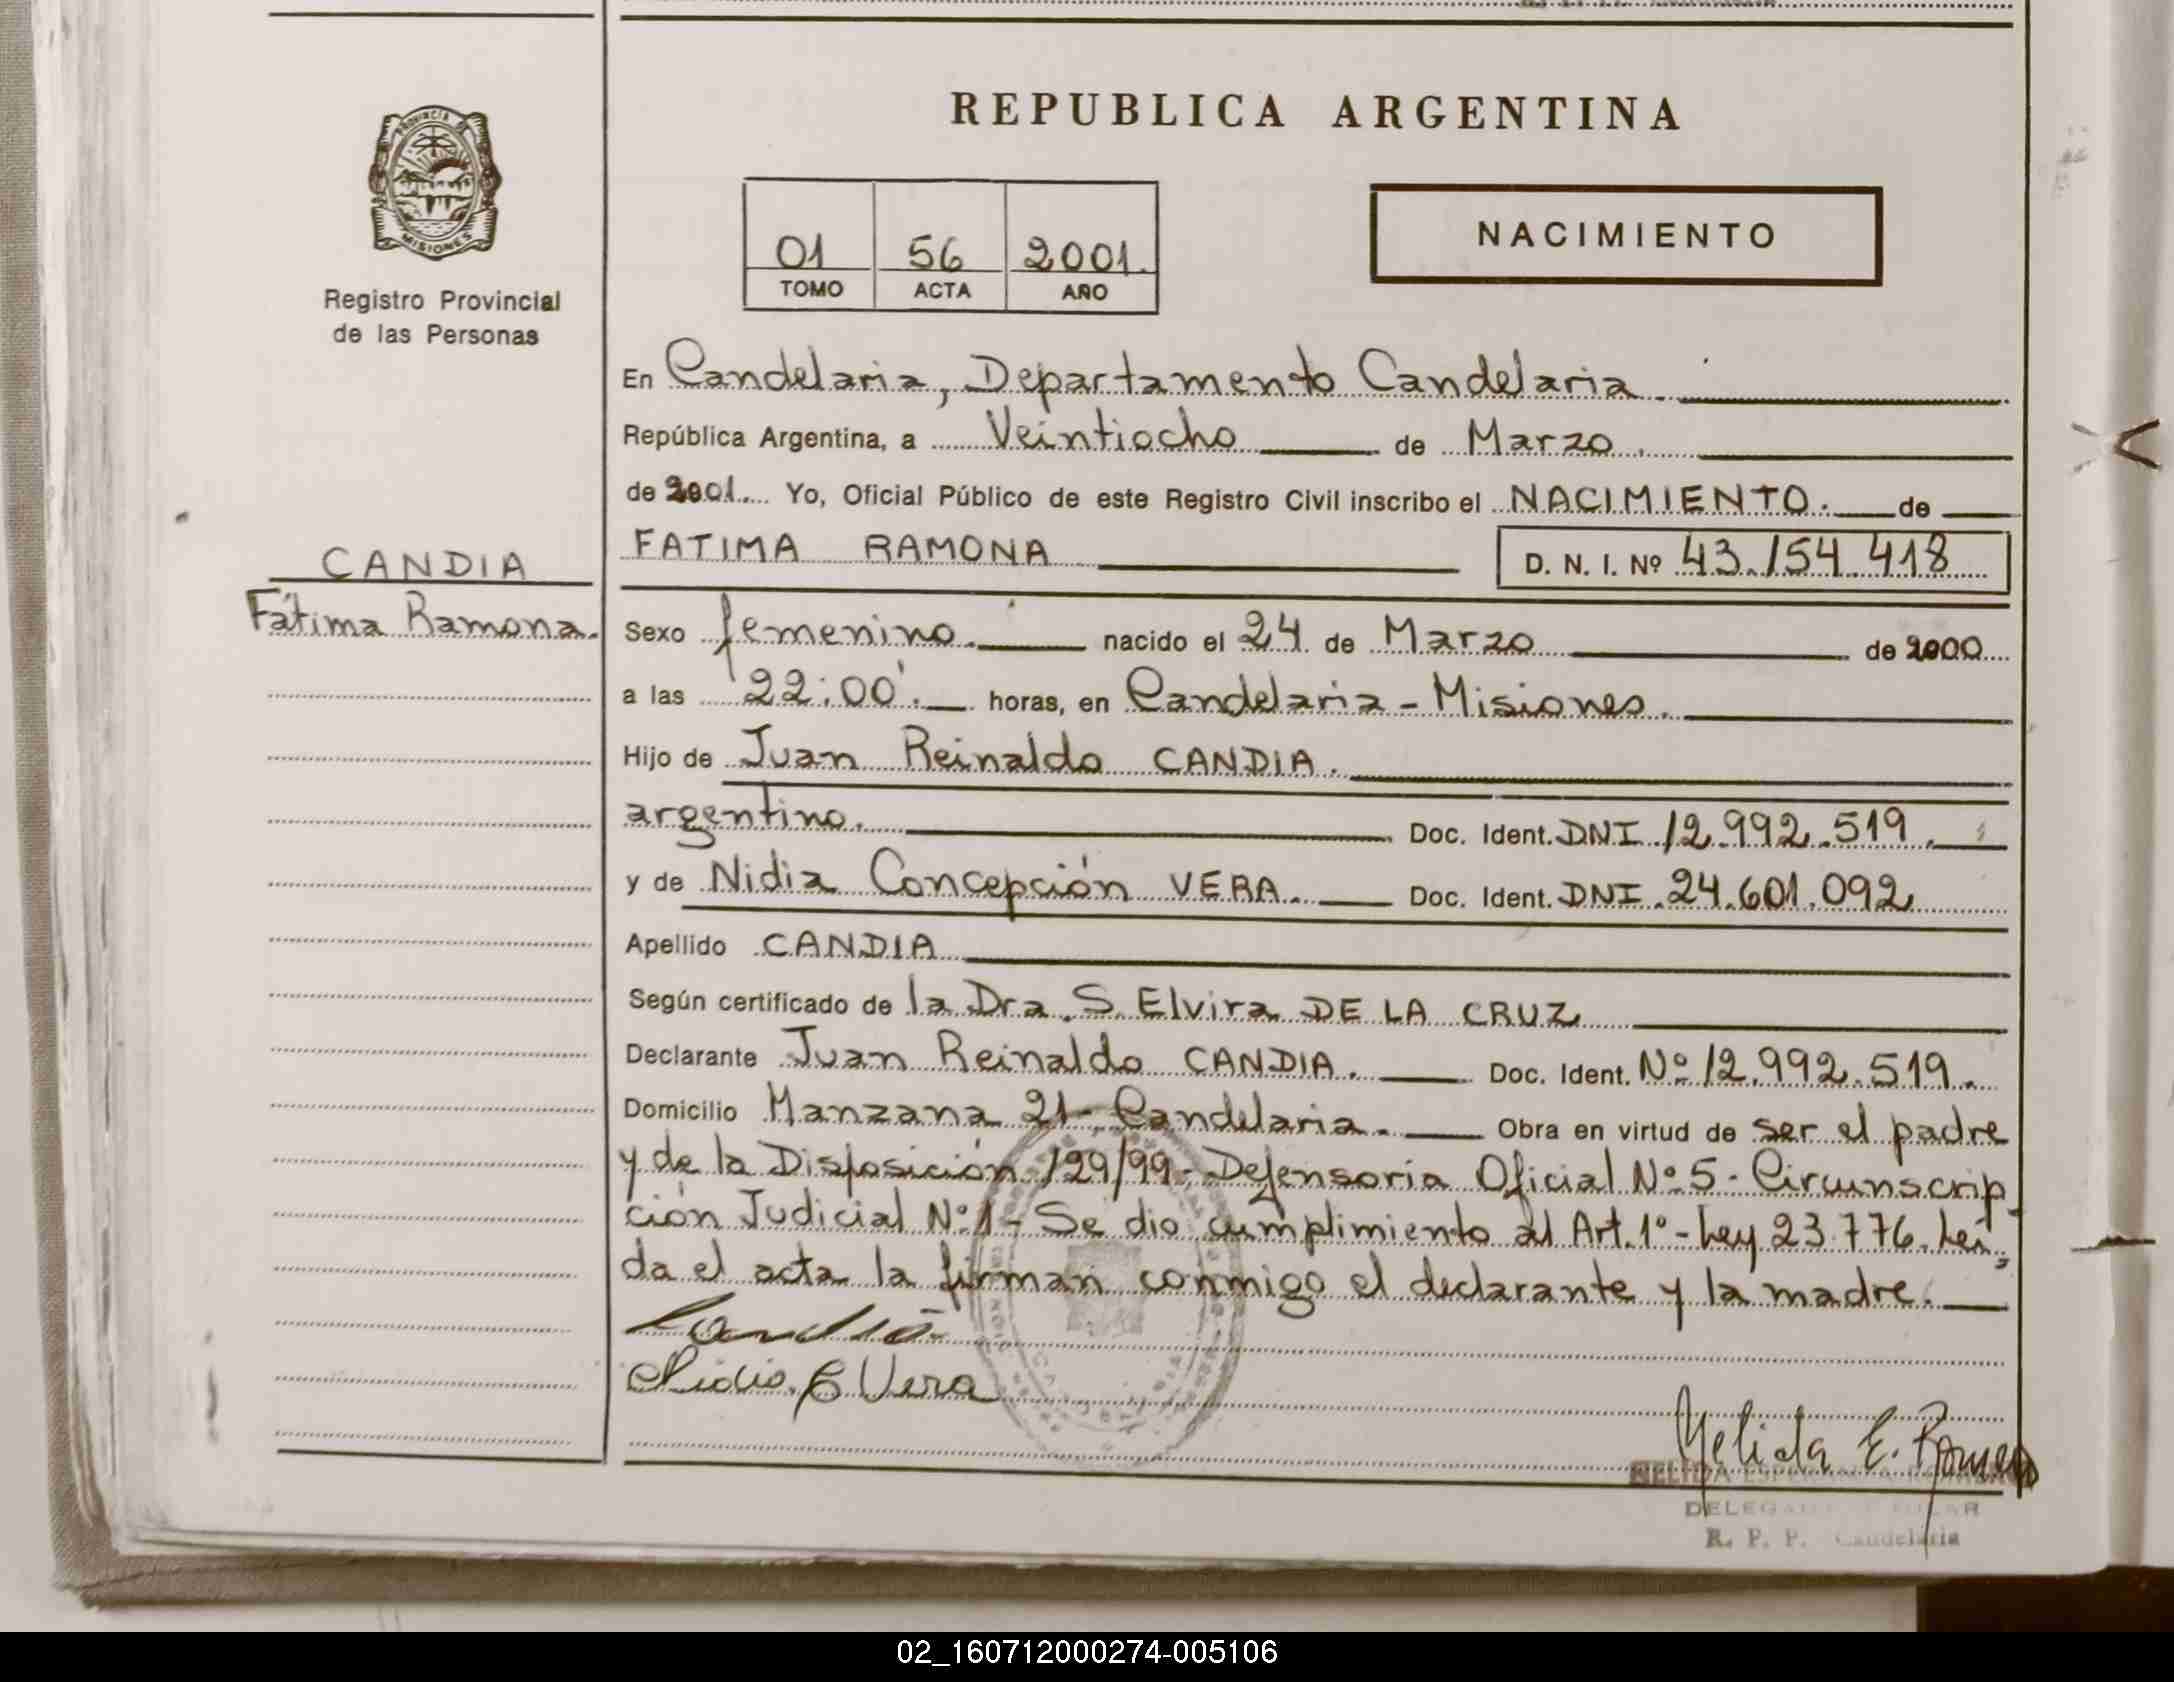 PROVINCIA DE
MISIONES
Registro Provincial
de las Personas
CANDIA
Fátima Ramona.
REPUBLICA ARGENTINA
01 56 2001.
TOMO ACTA AÑO
NACIMIENTO
En Candelaria, Departamento Candelaria.
República Argentina, a Veintiocho de Marzo.
de 2001. Yo, Oficial Público de este Registro Civil inscribo el NACIMIENTO. de
FATIMA RAMONA D. N. I. Nº 43.154.418
Sexo femenino. nacido el 24 de Marzo de 2000
a las 22:00'. horas, en Candelaria - Misiones.
Hijo de Juan Reinaldo CANDIA.
argentino. Doc. Ident. DNI 12.992.519.
y de Nidia Concepción VERA. Doc. Ident. DNI 24.601.092
Apellido CANDIA
Según certificado de la Dra. S. Elvira DE LA CRUZ
Declarante Juan Reinaldo CANDIA. Doc. Ident. Nº 12.992.519.
Domicilio Manzana 21- Candelaria. Obra en virtud de ser el padre
y de la Disposición 129/99- Defensoría Oficial Nº 5 - Circunscrip-
ción Judicial Nº 1 - Se dio cumplimiento al Art. 1º - Ley 23.776. Leí-
da el acta la firman conmigo el declarante y la madre.
Candia
Nidia C Vera
Nelida E. Romero
NELIDA
R. P. P. Candelaria
02_160712000274-005106